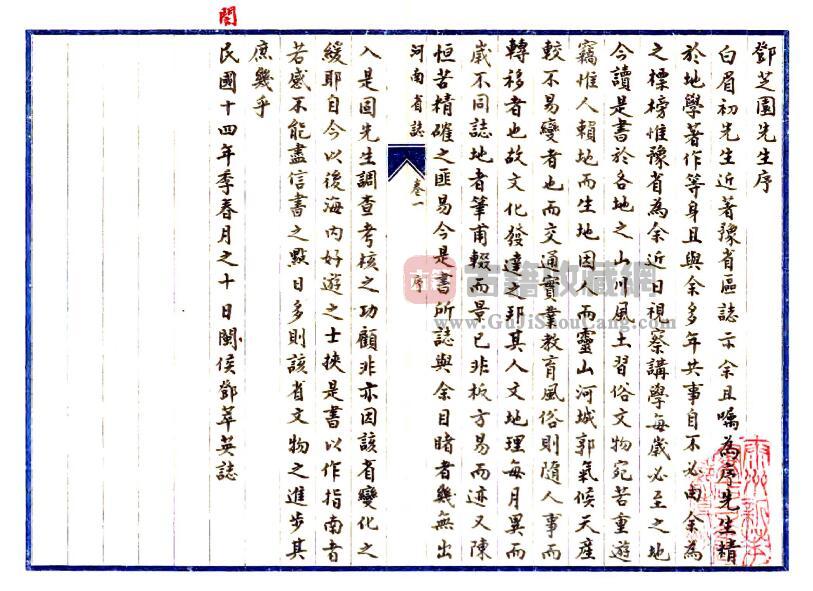 鄧芝園先生序
白眉初先生近著豫省區誌示余且囑為序先生精
於地學著作等身且與余多年共事自不必由余為
之標榜惟豫省為余近日視察講學每歲必至之地
今讀是書於各地之山川風土習俗文物宛若重遊
竊惟人賴地而生地因人而靈山河城郭氣候天產
較不易變者也而交通實業教育風俗則隨人事而
轉移者也故文化發達之邦其人文地理每月異而
歲不同誌地者筆甫輟而景已非板方易而迹又陳
恒苦精確之匪易今是書所誌與余目睹者幾無出
河南省誌 卷一 序
入是固先生調查考核之功顧非亦因該省變化之
緩耶自今以後海內好遊之士挾是書以作指南者
若感不能盡信書之點日多則該省文物之進步其
庶幾乎
民國十四年季春月之十日閩侯鄧萃英誌
閩
古籍收藏網
www.GuJiShouCang.com